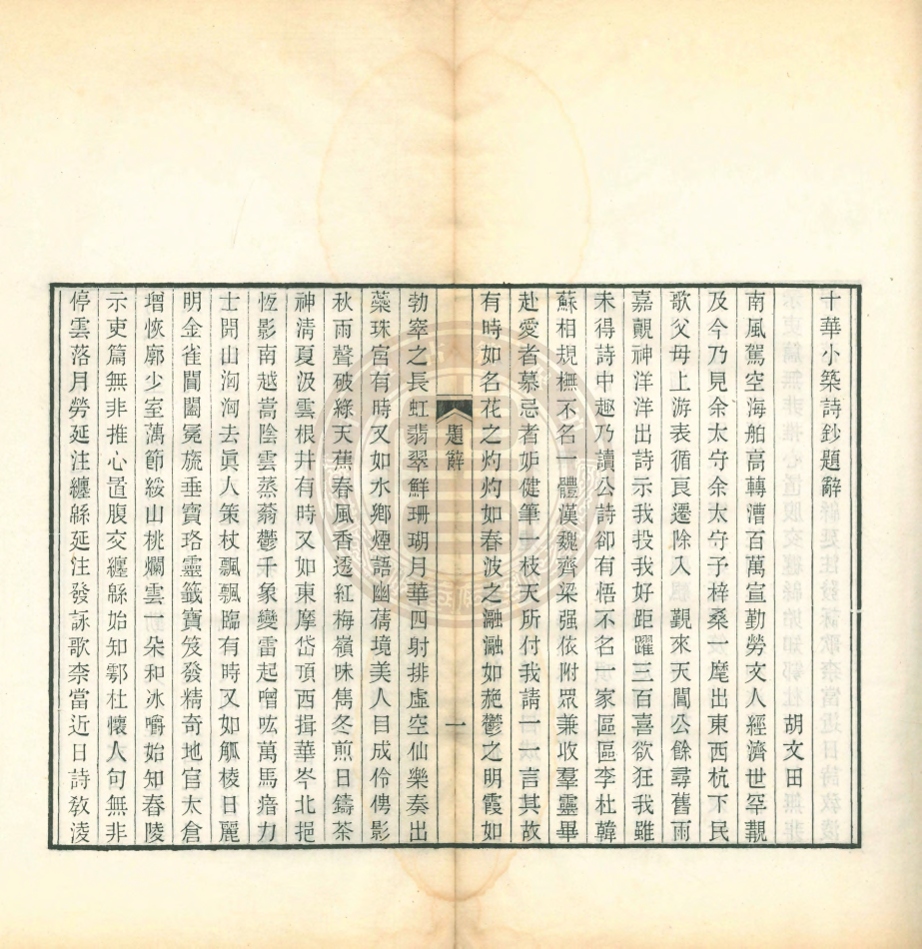 十華小築詩鈔題辭
胡文田
南風駕空海舶高轉漕百萬宣勤勞文人經濟世罕覯
及今乃見余太守余太守子梓桑一麾出東西杭下民
歌父母上游表循良遷除入覲來天閶公餘尋舊雨
嘉覿神洋洋出詩示我投我好距躍三百喜欲狂我雖
未得詩中趣乃讀公詩卻有悟不名一家區區李杜韓
蘇相規橅不名一體漢魏齊梁强依附眾兼收羣靈畢
赴愛者慕忌者妒健筆一枝天所付我請一一言其故
有時如名花之灼灼如春波之瀜瀜如葩鬱之明霞如
題辭
一
勃窣之長虹翡翠鮮珊瑚月華四射排虛空仙樂奏出
蘂珠宮有時又如水鄉煙語幽蒨境美人目成伶俜影
秋雨聲破綠天蕉春風香透紅梅嶺味雋冬煎日鑄茶
神清夏汲雲根井有時又如東摩岱頂西揖華岑北挹
恆影南越嵩陰雲蒸蓊鬱千象變雷起噌吰萬馬瘖力
士開山洶洶去眞人策杖飄飄臨有時又如觚棱日麗
明金雀閶闔冕旒垂寶珞靈籤寶笈發精奇地官太倉
增恢廓少室蕅節綏山桃爛雲一朵和冰嚼始知春陵
示吏篇無非推心置腹交纏緜始知鄠杜懷人句無非
停雲落月勞延注纏緜延注發詠歌柰當近日詩敎淩